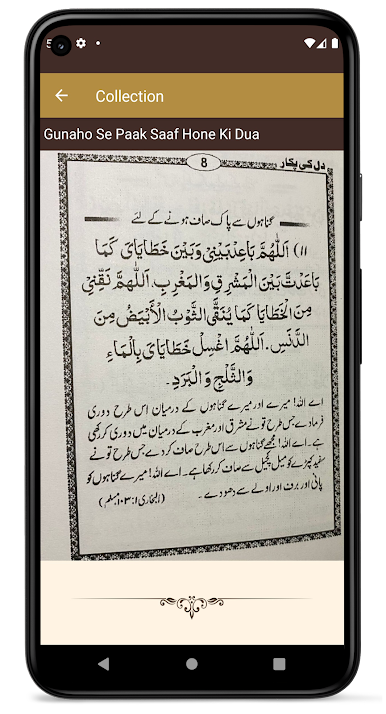 Collection
Gunaho Se Paak Saaf Hone Ki Dua
دل کی پکار
8
گناہوں سے پاک صاف ہونے کے لئے
(۱۱) اَللّٰهُمَّ بَاعِدْ بَيْنِيْ وَبَيْنَ خَطَايَايَ كَمَا
بَاعَدْتَّ بَيْنَ الْمَشْرِقِ وَالْمَغْرِبِ. اَللّٰهُمَّ نَقِّنِيْ
مِنَ الْخَطَايَا كَمَا يُنَقَّى الثَّوْبُ الْأَبْيَضُ مِنَ
الدَّنَسِ. اَللّٰهُمَّ اغْسِلْ خَطَايَايَ بِالْمَاءِ
وَالثَّلْجِ وَالْبَرَدِ.
اے اللہ! میرے اور میرے گناہوں کے درمیان اس طرح دوری
فرمادے جس طرح تو نے مشرق اور مغرب کے درمیان میں دوری کر رکھی
ہے۔ اے اللہ! مجھے گناہوں سے اس طرح صاف کر دے جس طرح تو نے
سفید کپڑے کو میل کچیل سے صاف کر رکھا ہے۔ اے اللہ! میرے گناہوں کو
پانی اور برف اور اولے سے دھو دے۔ (البخاری ۱:۱۰۳، مسلم)